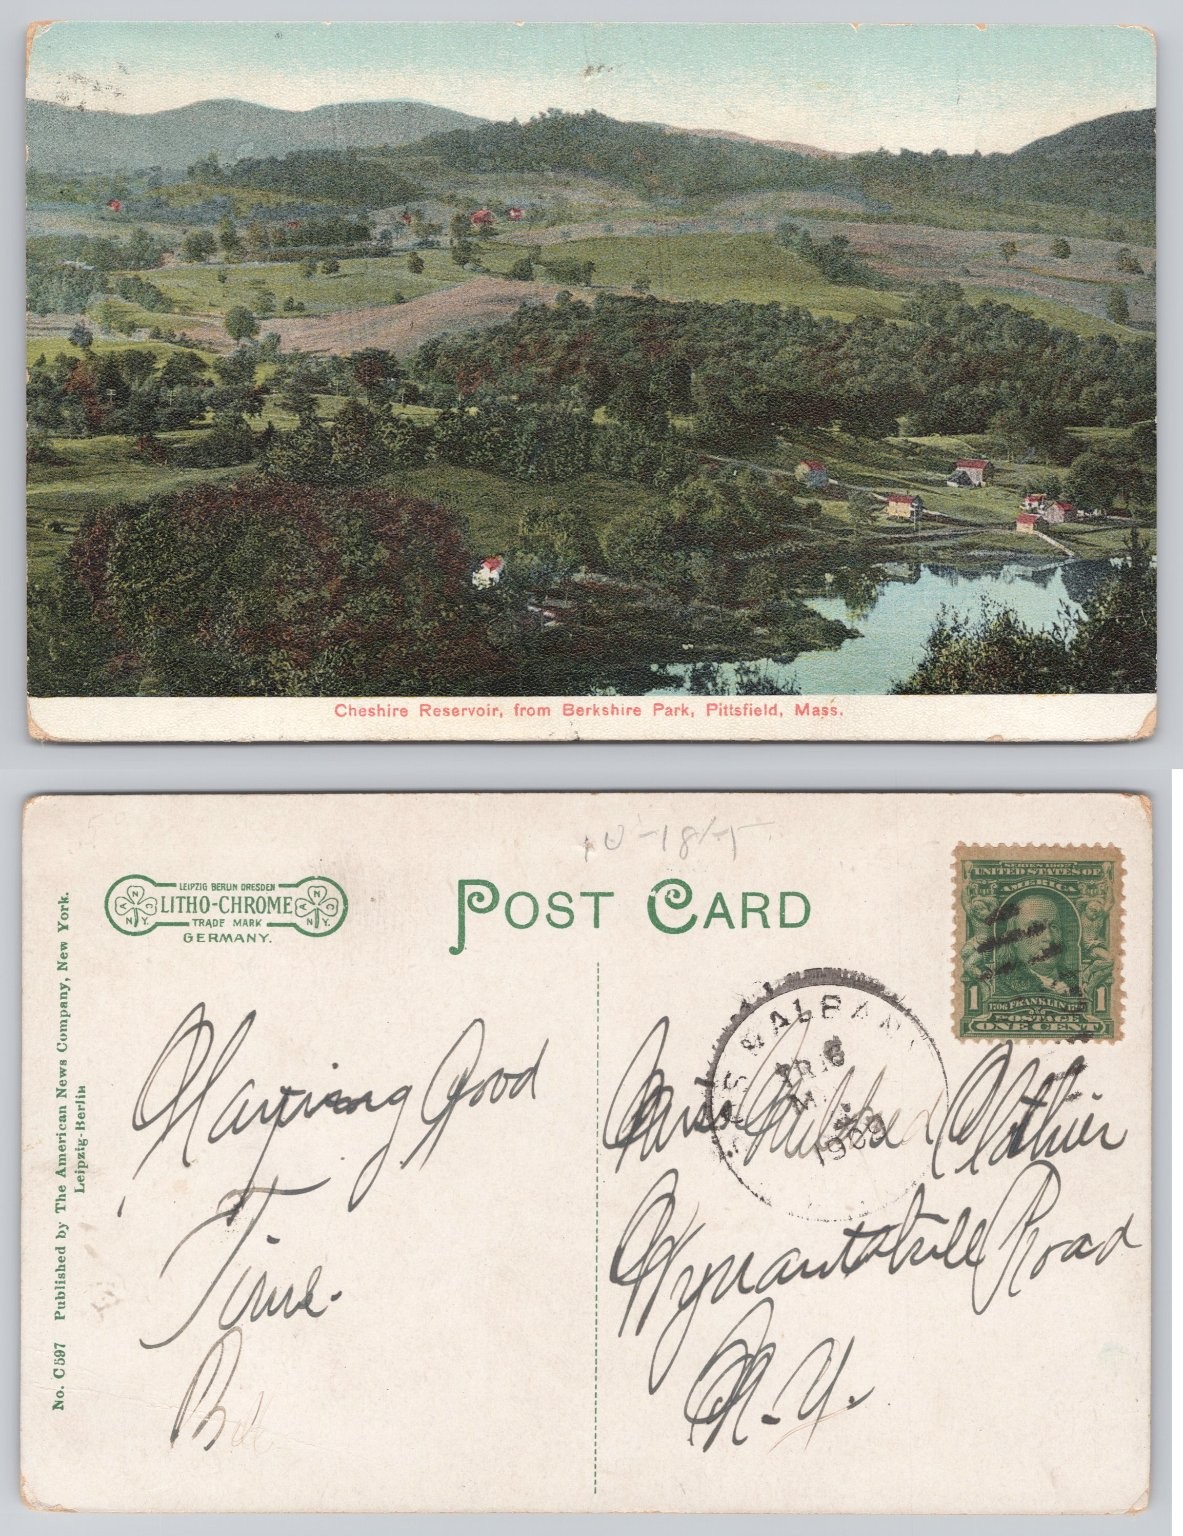 Cheshire Reservoir, from Berkshire Park, Pittsfield, Mass.
LEIPZIG BERLIN DRESDEN
LITHO-CHROME
TRADE MARK
GERMANY.
A N C N.Y.
A N C N.Y.
POST CARD
No. C597 Published by The American News Company, New York.
Leipzig-Berlin
SERIES 1902
UNITED STATES OF
AMERICA
1 1
1706 FRANKLIN 1790
POSTAGE
ONE CENT
ALBAN
1909
Having Good
Time.
Miss Clothier
Wynantskill Road
N.Y.